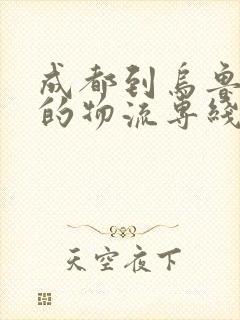 成都到乌鲁
的物流专线
天空夜下